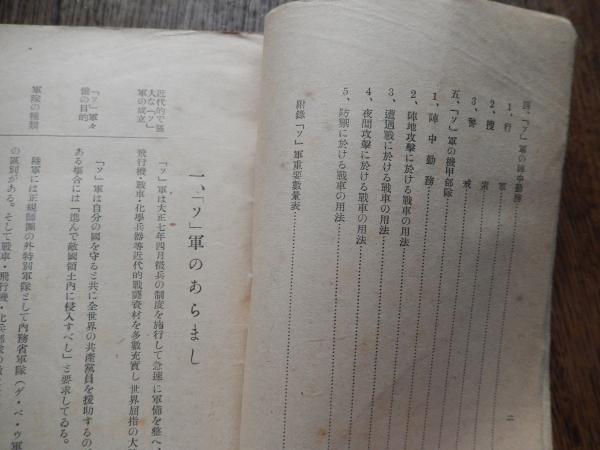 四、「ソ」軍の陣中勤務
1、行軍
2、捜索
3、警戒
五、「ソ」軍の機甲部隊
1、陣中勤務
2、陣地攻撃に於ける戰車の用法
3、遭遇戰に於ける戰車の用法
4、夜間攻撃に於ける戰車の用法
5、防禦に於ける戰車の用法
附錄「ソ」軍重要數量表
二
一、「ソ」軍のあらまし
近代的で厖
大な「ソ」
軍の成立
「ソ」軍は大正七年四月徵兵の制度を施行して急速に軍備を整へ、
飛行機・戰車・化學兵器等近代的戰鬪資材を多數充實し世界屈指の大
「ソ」軍々
備の目的
「ソ」軍は自分の國を守ると共に全世界の共產黨員を援助するの
ある場合には「進んで敵國領土內に侵入すべし」と要求してゐる。
軍隊の種類
陸軍には正規師團の外特別軍隊として內務省軍隊（ゲ・ペ・ウ軍
の區別がある。そして戰車・飛行機・化兵部隊の